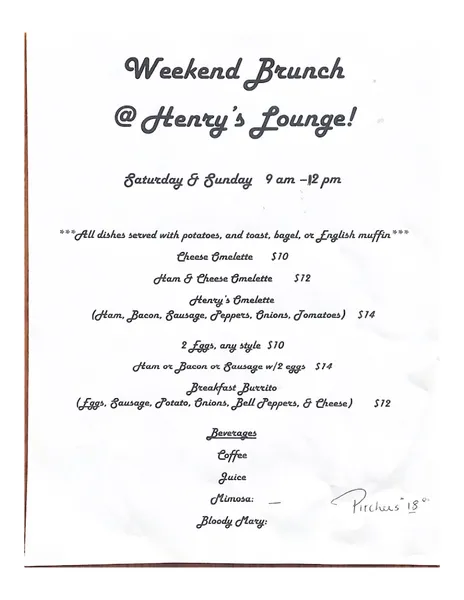 Weekend Brunch
@ Henry's Lounge!
Saturday & Sunday 9 am –12 pm
***All dishes served with potatoes, and toast, bagel, or English muffin***
Cheese Omelette $10
Ham & Cheese Omelette $12
Henry's Omelette
(Ham, Bacon, Sausage, Peppers, Onions, Tomatoes) $14
2 Eggs, any style $10
Ham or Bacon or Sausage w/2 eggs $14
Breakfast Burrito
(Eggs, Sausage, Potato, Onions, Bell Peppers, & Cheese) $12
Beverages
Coffee
Juice
Mimosa:
Pitchers 18
Bloody Mary: